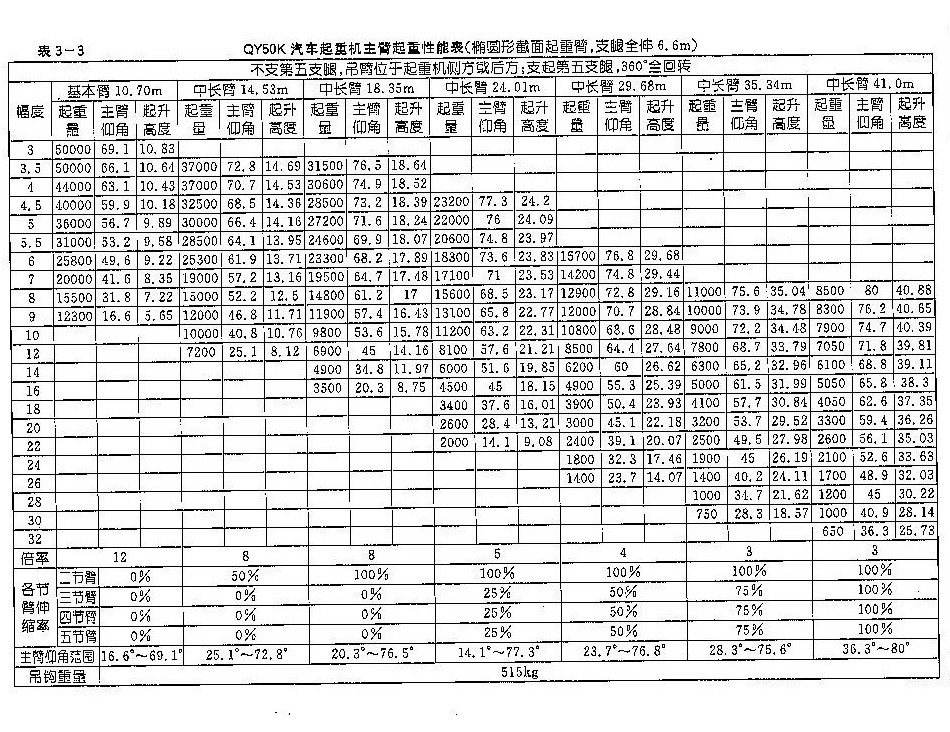 表3-3 QY50K 汽车起重机主臂起重性能表(椭圆形截面起重臂,支腿全伸6.6m)
不支第五支腿,吊臂位于起重机侧方或后方;支起第五支腿,360°全回转
幅度 基本臂 10.70m 中长臂 14.53m 中长臂 18.35m 中长臂 24.01m 中长臂 29.68m 中长臂 35.34m 中长臂 41.0m
起重量 主臂仰角 起升高度 起重量 主臂仰角 起升高度 起重量 主臂仰角 起升高度 起重量 主臂仰角 起升高度 起重量 主臂仰角 起升高度 起重量 主臂仰角 起升高度 起重量 主臂仰角 起升高度
3 50000 69.1 10.83
3.5 50000 66.1 10.64 37000 72.8 14.69 31500 76.5 18.64
4 44000 63.1 10.43 37000 70.7 14.53 30600 74.9 18.52
4.5 40000 59.9 10.18 32500 68.5 14.36 28500 73.2 18.39 23200 77.3 24.2
5 36000 56.7 9.89 30000 66.4 14.16 27200 71.6 18.24 22000 76 24.09
5.5 31000 53.2 9.58 28500 64.1 13.95 24600 69.9 18.07 20600 74.8 23.97
6 25800 49.6 9.22 25300 61.9 13.71 23300 68.2 17.89 18300 73.6 23.83 15700 76.8 29.68
7 20000 41.6 8.35 19000 57.2 13.16 19500 64.7 17.48 17100 71 23.53 14200 74.8 29.44
8 15500 31.8 7.22 15000 52.2 12.5 14800 61.2 17 15600 68.5 23.17 12900 72.8 29.16 11000 75.6 35.04 8500 80 40.88
9 12300 16.6 5.65 12000 46.8 11.71 11900 57.4 16.43 13100 65.8 22.77 12000 70.7 28.84 10000 73.9 34.78 8300 76.2 40.65
10 10000 40.8 10.76 9800 53.6 15.78 11200 63.2 22.31 10800 68.6 28.48 9000 72.2 34.48 7900 74.7 40.39
12 7200 25.1 8.12 6900 45 14.16 8100 57.6 21.21 8500 64.4 27.64 7800 68.7 33.79 7050 71.8 39.81
14 4900 34.8 11.97 6000 51.6 19.85 6200 60 26.62 6300 65.2 32.96 6100 68.8 39.11
16 3500 20.3 8.75 4500 45 18.15 4900 55.3 25.39 5000 61.5 31.99 5050 65.8 38.3
18 3400 37.6 16.01 3900 50.4 23.93 4100 57.7 30.84 4050 62.6 37.35
20 2600 28.4 13.21 3000 45.1 22.18 3200 53.7 29.52 3300 59.4 36.26
22 2000 14.1 9.08 2400 39.1 20.07 2500 49.5 27.98 2600 56.1 35.03
24 1800 32.3 17.46 1900 45 26.19 2100 52.6 33.63
26 1400 23.7 14.07 1400 40.2 24.11 1700 48.9 32.03
28 1000 34.7 21.62 1200 45 30.22
30 750 28.3 18.57 1000 40.9 28.14
32 650 36.3 25.73
倍率 12 8 8 5 4 3 3
各节臂伸缩率 二节臂 0% 50% 100% 100% 100% 100% 100%
三节臂 0% 0% 0% 25% 50% 75% 100%
四节臂 0% 0% 0% 25% 50% 75% 100%
五节臂 0% 0% 0% 25% 50% 75% 100%
主臂仰角范围 16.6°~69.1° 25.1°~72.8° 20.3°~76.5° 14.1°~77.3° 23.7°~76.8° 28.3°~75.6° 36.3°~80°
吊钩重量 515kg